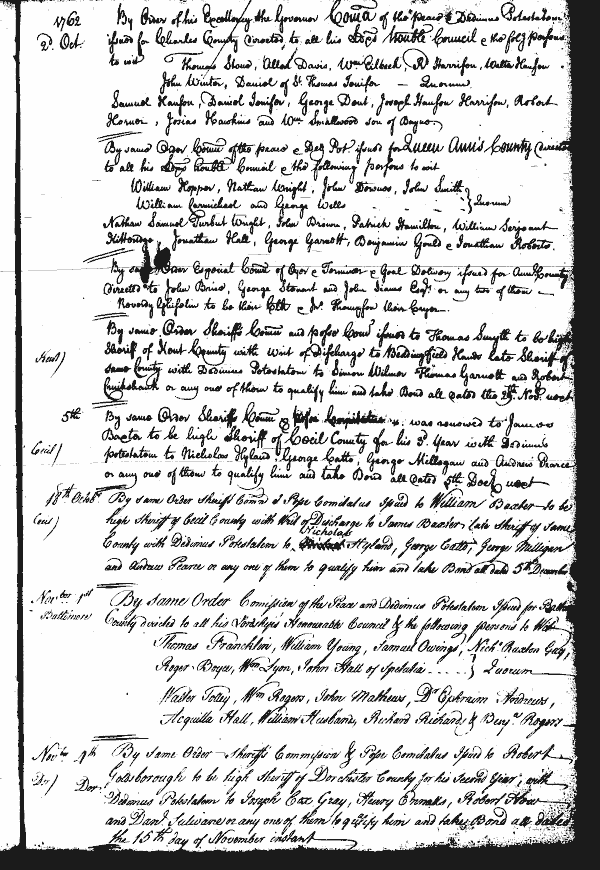 1762
2d. Oct.
By Order of his Excellency the Governor Comn of the peace & Dedimus Potestatem
issued for Charles County directed to all his Ldps honble Council & the folg persons
to wit Thomas Stone, Allen Davis, Wm Eilbeck, Rd Harrison, Walter Hanson
John Winter, Daniel of St Thomas Jenifer — Quorum
Samuel Hanson, Daniel Jenifer, George Dent, Joseph Hanson Harrison, Robert
Horner, Josias Hawkins and Wm Smallwood son of Bayne
By same Order Comn of the peace & Ded Pot issued for Queen Anns County directed
to all his Ldps honble Council & the following persons to wit
William Hopper, Nathan Wright, John Downes, John Smith
William Carmichael and George Wells } Quorum
Nathan Samuel Turbut Wright, John Brown, Patrick Hamilton, William Sergeant
Jonathan Hall, George Garnett, Benjamin Gould & Jonathan Roberts.
By same Order Especial Comn of Oyer & Terminer & Goal Delivery issued for Ann County
directed to John Brice, George Steuart and John Esqrs or any two of them —
Reverdy Ghiselin to be their Clk & Jno. Thompson their Cryer.
Kent)
By same Order Sheriffs Comn and posse Com issued to Thomas Smyth to be high
Sheriff of Kent County with Writ of Discharge to Bedingfield Hands late Sheriff of
same County with Dedimus Potestatem to Simon Wilmer Thomas Garnett and Robert
Cruikshank or any one of them to qualify him and take Bond all dated the Novr. next
5th
Cecil)
By same Order Sheriffs Comn was renewed to James
Baxter to be high Sheriff of Cecil County for his 3d. Year with Dedimus
potestatem to Nicholas Hyland, George Catto, George Millegan and Andrew Pearce
or any one of them to qualify him and take Bond all dated 5th Decr next
18th Octobr.
Cecil)
By same Order Sheriff Comn & Pose Comitatus Issued to William Baxter to be
high Sheriff of Cecil County with Writ of Discharge to James Baxter, late Sheriff of same
County with Dedimus Potestatem to Nicholas Hyland, George Catto, George Milligan
and Andrew Pearce or any one of them to qualify him and take Bond all dated 5th December
Novber 1st
Baltimore
By same Order Comission of the Peace and Dedimus Potestatem Issued for Baltim
County directed to all his Lordships Honourable Council & the following persons to Wit
Thomas Francklin, William Young, Samuel Owings, Nichs. Ruxton Gay,
Roger Boyce, Wm Lyon, John Hall of Spesutia } Quorum
Walter Tolley, Wm Rogers, John Mathews, Dr. Ephraim Andrews,
Acquilla Hall, William Husband, Richard Richards & Benja. Rogers
Novber 4th
Dor)
Dor:
By Same Order — Sheriffs Commission & Pose Comitatus Issued to Robert
Goldsborough to be high Sheriff of Dorchester County for his Second Year, with
Dedimus Potestatem to Joseph Cox Gray, Henry Ennalls, Robert How
and Danl. Sulivane or any one of them to qualify him and take Bond all dated
the 15th day of November instant